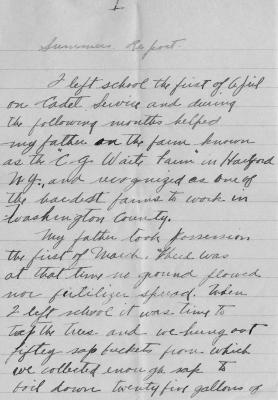 1
Summers Report.
I left school the first of April
on Cadet Service and during
the following months helped
my father on the farm known
as the "C. G. Waite Farm" in Hartford
N.Y., and recognized as one of
the hardest farms to work in
Washington County.
My father took possession
the first of March. There was
at that time no ground plowed
nor fertilizer spread. When
I left school it was time to
tap the trees and we hung out
fifteen sap buckets from which
we collected enough sap to
boil down twenty five gallons of